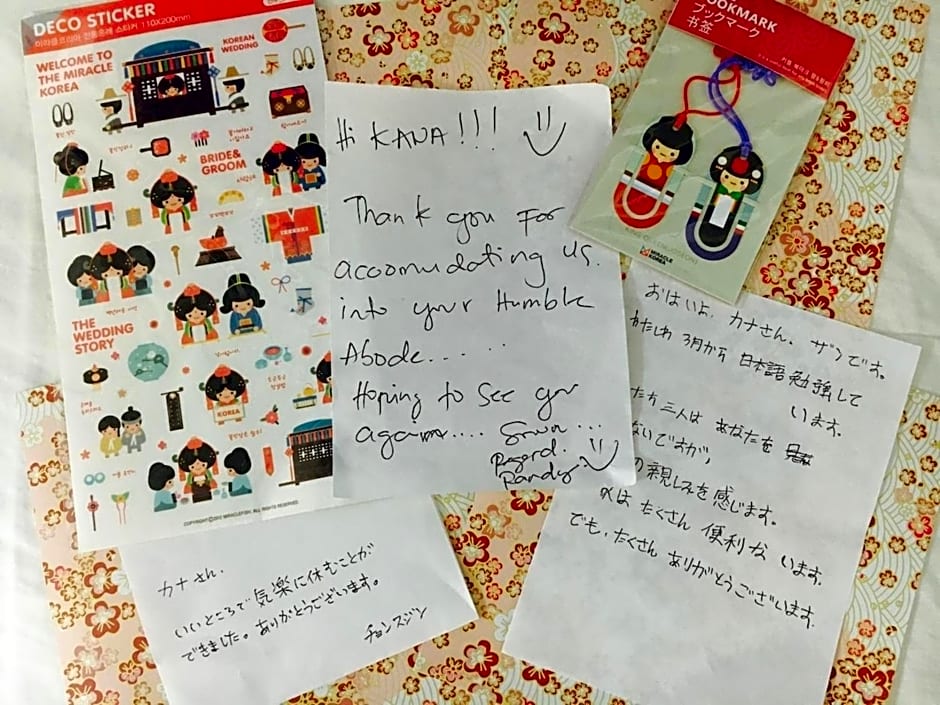 DECO STICKER
미라클코리아 전통혼례 스티커 110X200mm
WELCOME TO
THE MIRACLE
KOREA
KOREAN
WEDDING
BRIDE&
GROOM
THE
WEDDING
STORY
KOREA
COPYRIGHT©2012 MIRACLEFISH. ALL RIGHTS RESERVED.
Hi KANA!!!
Thank you For
accomudating us.
into your Humble
Abode......
Hoping to See you
again....
Regard.
Randy
BOOKMARK
ブックマーク
书签
MIRACLE
KOREA
おはいよ、カナさん、
ザンです。
わたしわ 3月から 日本語 勉強して
います。
たち 三人は あなたを
ないですが、
の親しみを感じます。
はたくさん 便利な います。
でも、たくさん ありがとうございます.
カナさん.
いいところで気楽に休むことが
できました。ありがとうございます。
チョンスジン